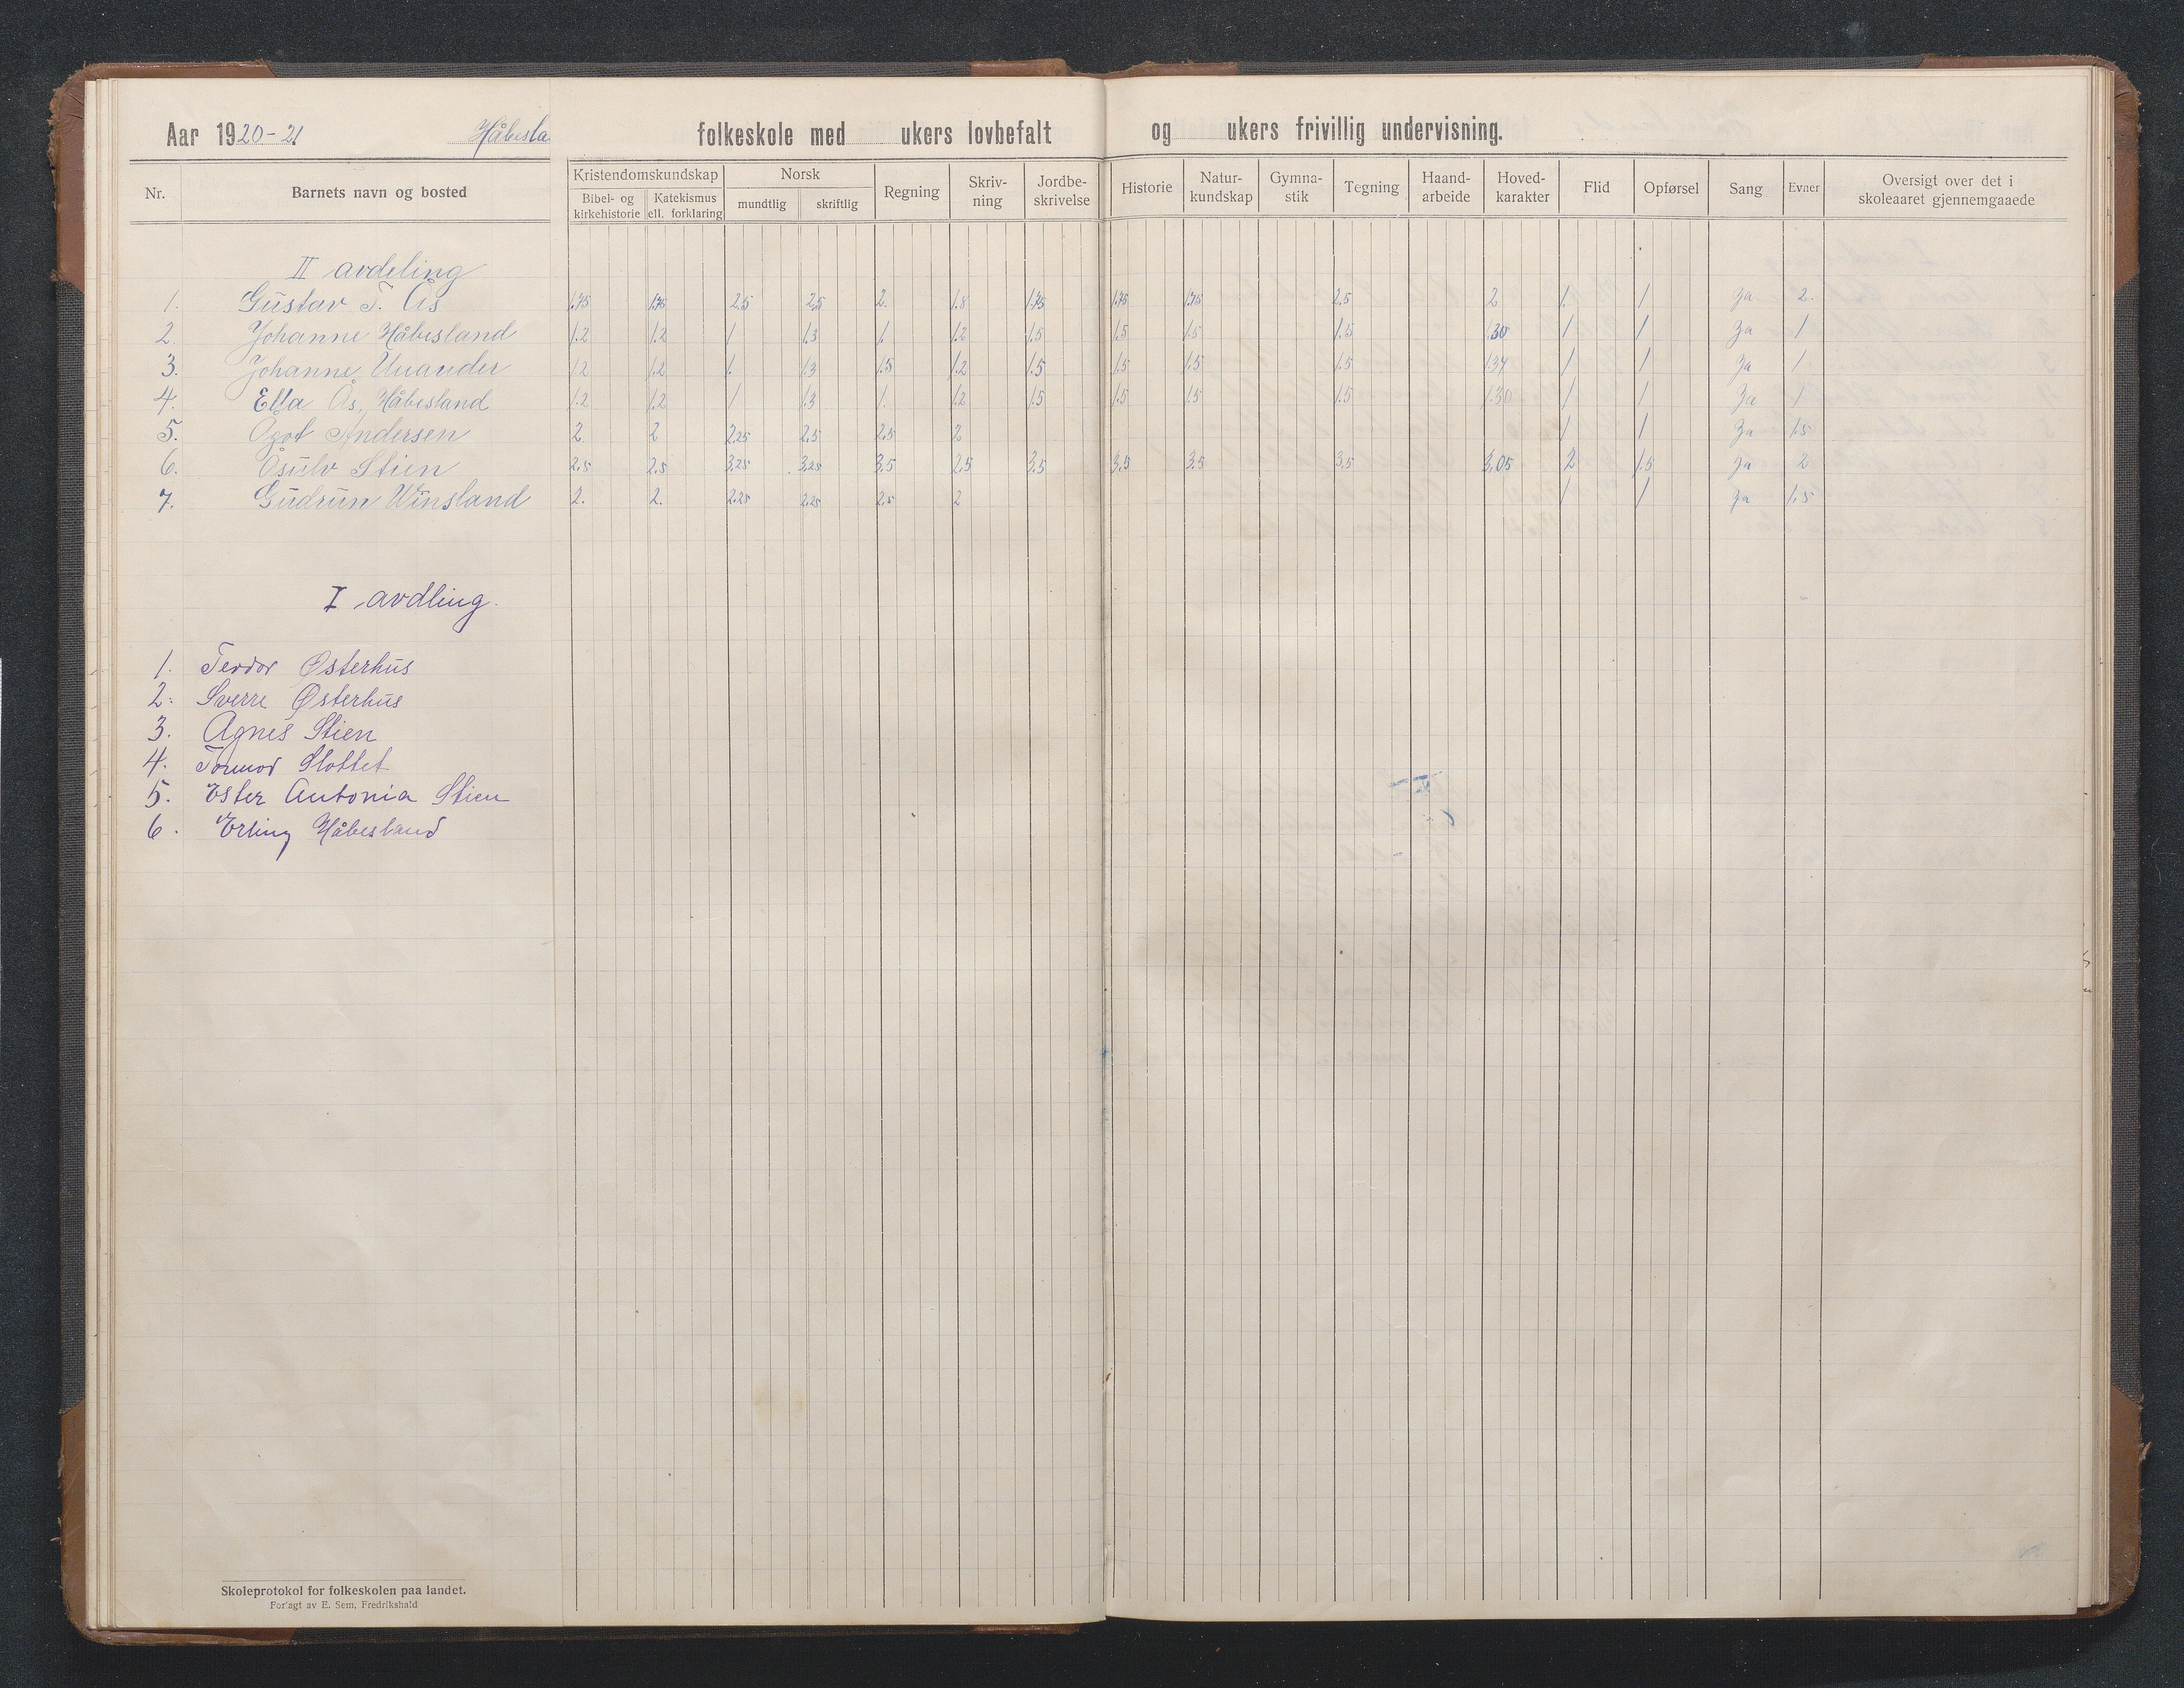 Aar 1920-21 Håbesla folkeskole med ukers lovbefalt og ukers frivillig undervisning.
Nr. Barnets navn og bosted Kristendomskundskap Bibel- og kirkehistorie Katekismus ell. forklaring Norsk mundtlig skriftlig Regning Skriv-ning Jordbe-skrivelse Historie Natur-kundskap Gymna-stik Tegning Haand-arbeide Hoved-karakter Flid Opførsel Sang Evner Oversigt over det i skoleaaret gjennemgaaede
II avdeling
1. Gustav T. Ås 1.75 1.75 2.5 2.5 2. 1.8 1.75 1.75 1.75 2.5 2 1. 1 Ja 2.
2. Johanne Håbesland 1.2 1.2 1 1.3 1. 1.2 1.5 1.5 1.5 1.5 1.30 1 1 Ja 1
3. Johanne 1.2 1.2 1. 1.3 1.5 1.2 1.5 1.5 1.5 1.5 1.34 1 1 Ja 1.
4. Ella Ås, Håbesland 1.2 1.2 1 1.3 1. 1.2 1.5 1.5 1.5 1.5 1.30 1 1 Ja 1
5. Ågot Andersen 2. 2 2.25 2.5 2.5 2 1 1 Ja 1.5
6. Åsulv Stien 2.5 2.5 3.25 3.25 3.5 2.5 3.5 3.5 3.5 3.5 3.05 2 1.5 Ja 2
7. Gudrun Winsland 2. 2. 2.25 2.25 2.5 2 1 1 Ja 1.5
I avdling.
1. Teodor Østerhus
2. Sverre Østerhus
3. Agnes Stien
4. Tormod Slottet
5. Ester Antonia Stien
6. Erling Håbesland
Skoleprotokol for folkeskolen paa landet.
Forlagt av E. Sem, Fredrikshald